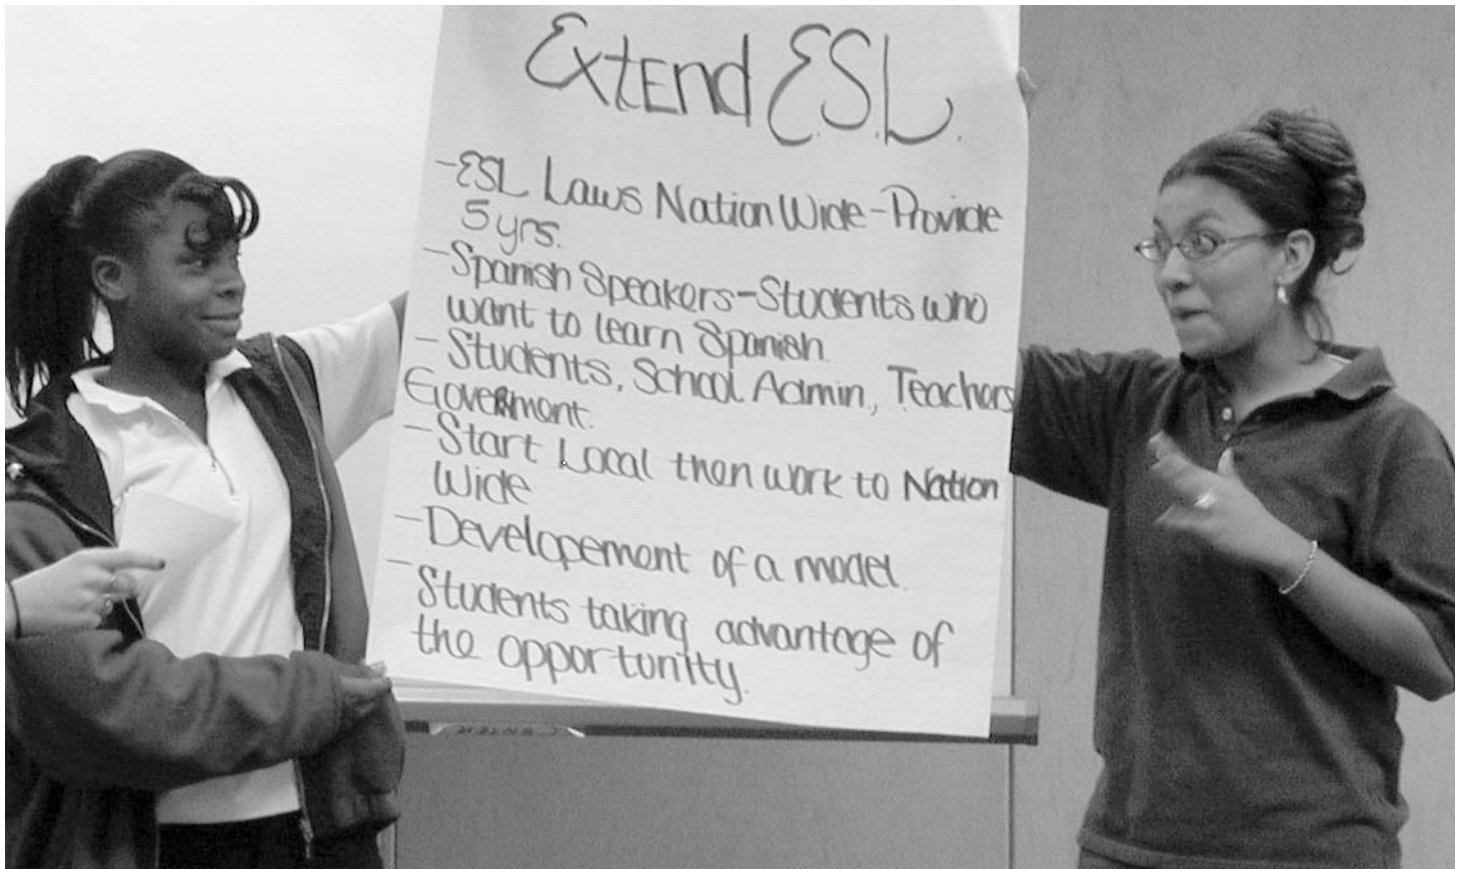 Extend E.S.L.
-ESL Laws Nation Wide-Provide
5 yrs.
-Spanish Speakers-Students who
want to learn Spanish.
-Students, School Admin., Teachers
Government.
-Start Local then work to Nation
Wide
-Developement of a model.
-Students taking advantage of
the opportunity.